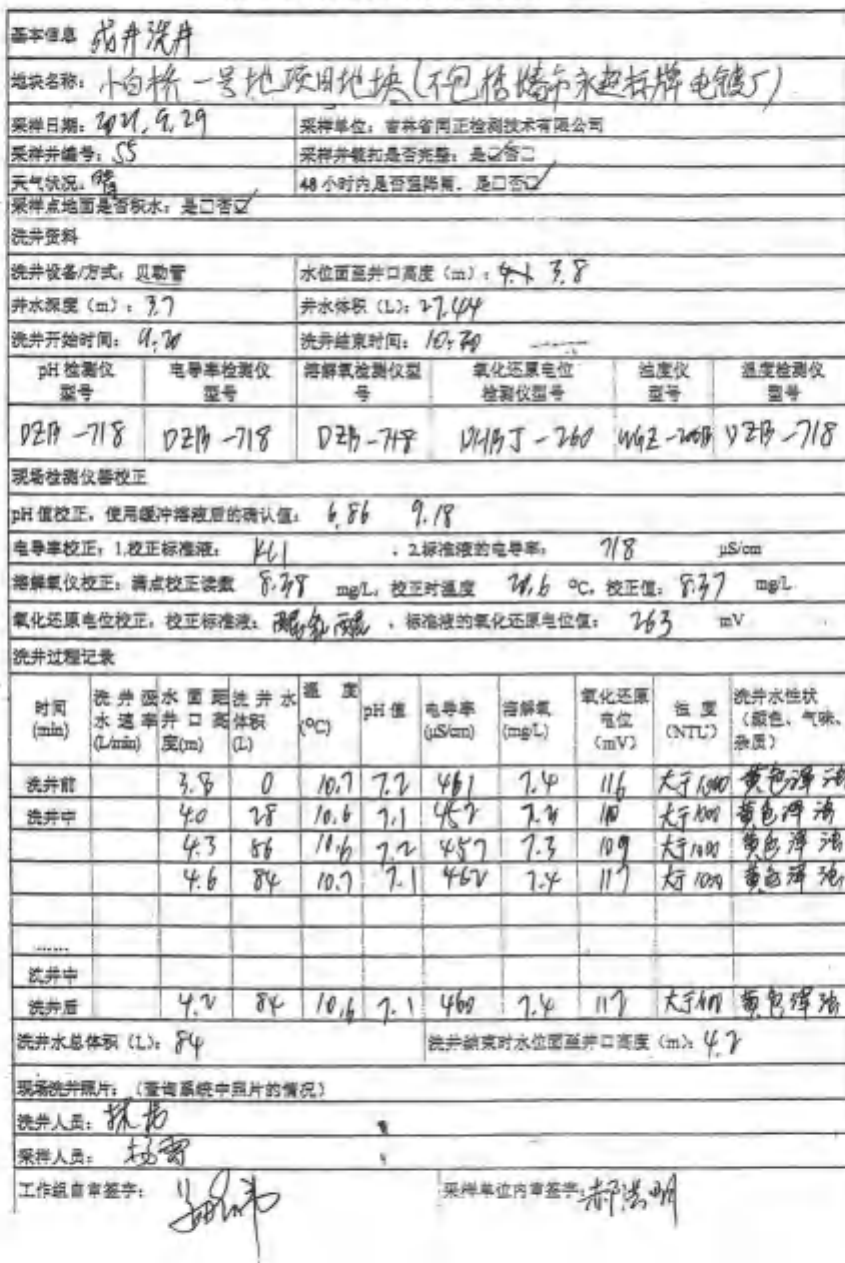 基本信息 成井洗井
地块名称: 小白桥一号地项目地块(不包括 市永超标牌电镀厂)
采样日期: 2021.9.29 采样单位: 吉林省同正检测技术有限公司
采样井编号: S5 采样井锁扣是否完整: 是☑否□
天气状况: 晴 48 小时内是否强降雨. 是□否☑
采样点地面是否积水: 是□否☑
洗井资料
洗井设备/方式: 贝勒管 水位面至井口高度 (m): 3.8
井水深度 (m): 3.7 井水体积 (L): 27.44
洗井开始时间: 9:20 洗井结束时间: 10:20
pH 检测仪型号 电导率检测仪型号 溶解氧检测仪型号 氧化还原电位检测仪型号 浊度仪型号 温度检测仪型号
DZB-718 DZB-718 DZB-718 DHBJ-260 WGZ-200B DZB-718
现场检测仪器校正
pH 值校正, 使用缓冲溶液后的确认值: 6.86 9.18
电导率校正: 1.校正标准液: KCl . 2.标准液的电导率: 718 μS/cm
溶解氧仪校正: 满点校正读数 8.38 mg/L, 校正时温度 20.6 ℃, 校正值: 8.37 mg/L
氧化还原电位校正, 校正标准液: , 标准液的氧化还原电位值: 263 mV
洗井过程记录
时间(min) 洗井汲水速率(L/min) 水面距井口高度(m) 洗井水体积(L) 温度(℃) pH值 电导率(μS/cm) 溶解氧(mg/L) 氧化还原电位(mV) 浊度(NTU) 洗井水性状(颜色、气味、杂质)
洗井前 3.8 0 10.7 7.2 461 7.4 116 大于1000 黄色浑浊
洗井中 4.0 28 10.6 7.1 452 7.2 110 大于1000 黄色浑浊
4.3 56 10.6 7.2 457 7.3 109 大于1000 黄色浑浊
4.6 84 10.7 7.1 462 7.4 117 大于1000 黄色浑浊
……
洗井中
洗井后 4.2 84 10.6 7.1 460 7.4 112 大于1000 黄色浑浊
洗井水总体积 (L): 84 洗井结束时水位面至井口高度 (m): 4.2
现场洗井照片: (查询系统中照片的情况)
洗井人员:
采样人员:
工作组自审签字: 采样单位内审签字: 郝浩明